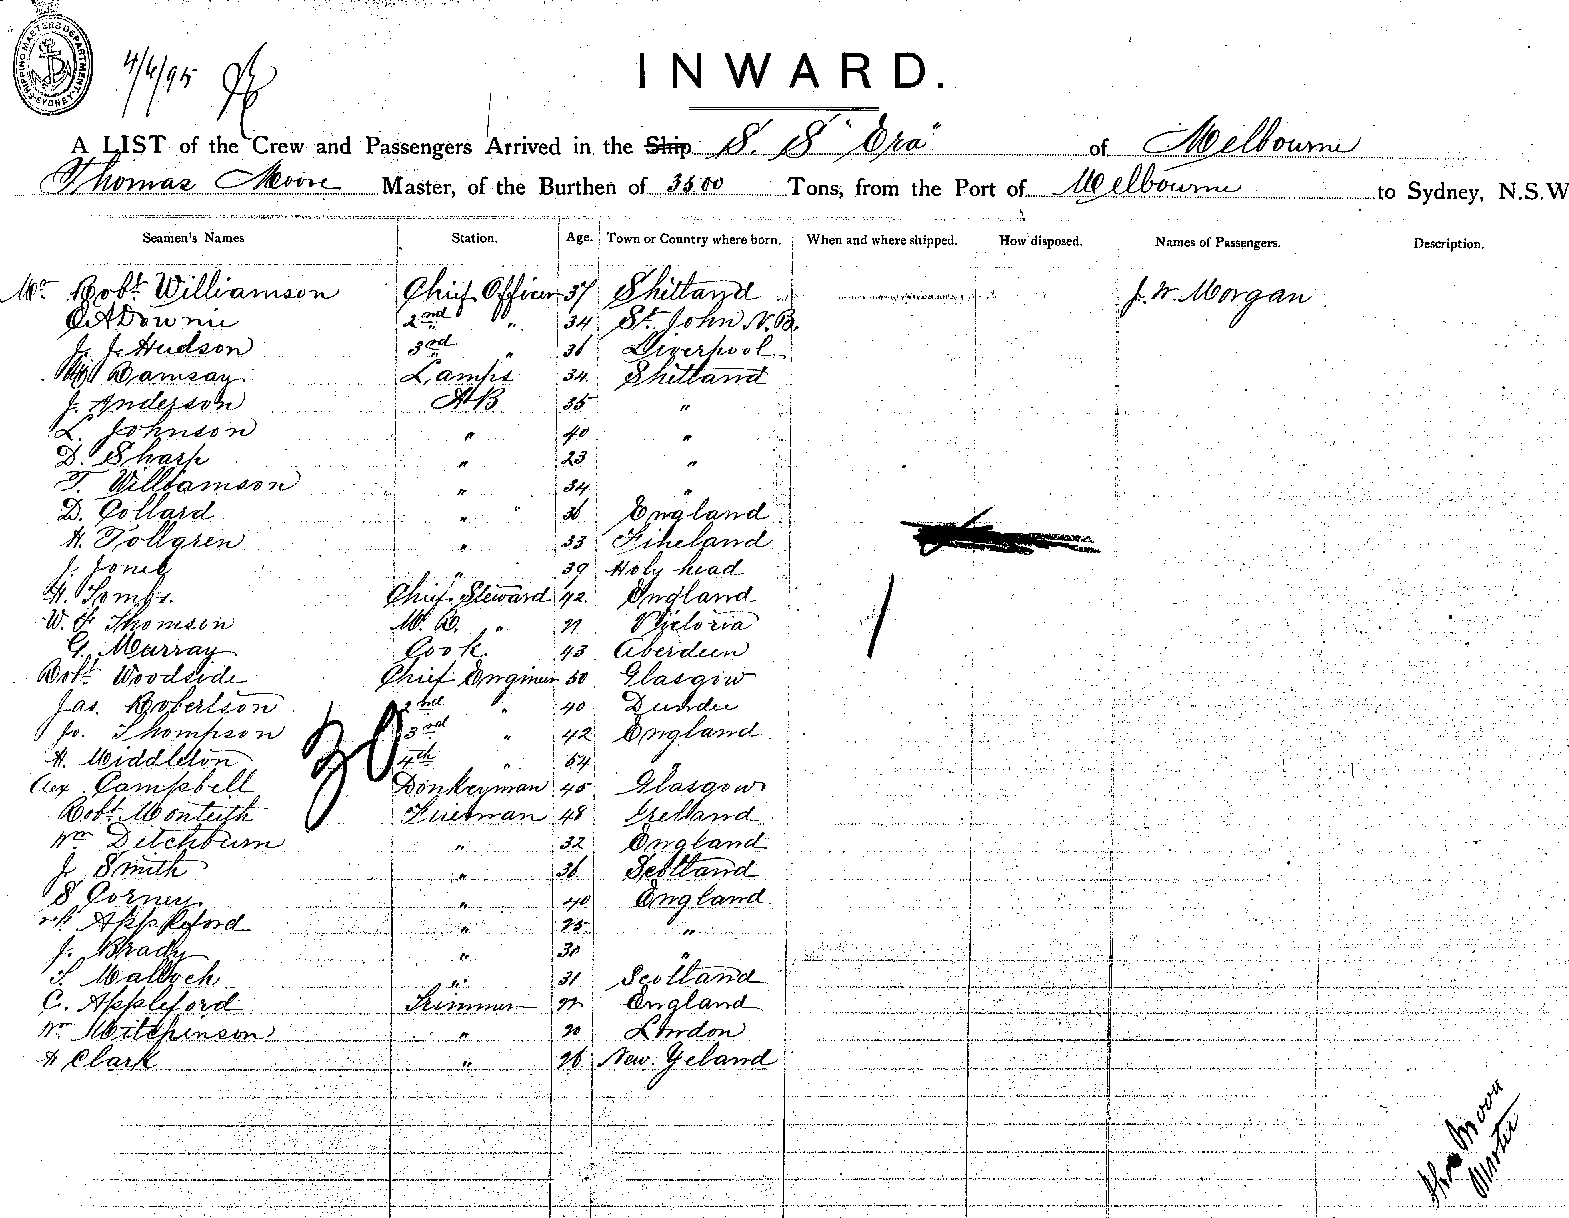 SHIPPING MASTERS DEPARTMENT SYDNEY
4/6/95
INWARD.
A LIST of the Crew and Passengers Arrived in the Ship S. S "Era" of Melbourne
Thomas Moore Master, of the Burthen of 3500 Tons, from the Port of Melbourne to Sydney, N.S.W
Seamen's Names Station. Age. Town or Country where born. When and where shipped. How disposed. Names of Passengers. Description.
Mr Robt Williamson Chief Officer 37 Shitland J. W. Morgan
Downie 2nd " 34 St. John N.B.
J. J. Hudson 3rd " 36 Liverpool
Ramsay Lamps 34 Shitland
J. Anderson AB 35 "
L. Johnson " 40 "
D. Sharp " 23 "
T. Williamson " 34 "
D. Collard " 36 England
H. Tollgren " 33 Fineland
J. Jones " 39 Holy head
H. Tombs. Chief Steward 42 England
W. F Thomson M. R. " 21 Victoria
G. Murray Cook 43 Aberdeen
Robt Woodside Chief Enginer 50 Glasgow
Jas. Robertson 2nd " 40 Dundee
Jo. Thompson 3rd " 42 England
H. Middleton 4th " 64 "
Alex Campbell Donkeyman 45 Glasgow
Robt Monteith Fireman 48 Ireland
Wm Ditchburn " 32 England
J Smith " 36 Scotland
S Corney " 40 England
Appleford " 25 "
J. Brady " 30 "
S. Malloch " 31 Scotland
C. Appleford Trimmer 22 England
Wm Mitchinson " 20 London
A Clark " 26 New Zeland
30
Thos Moore
Master